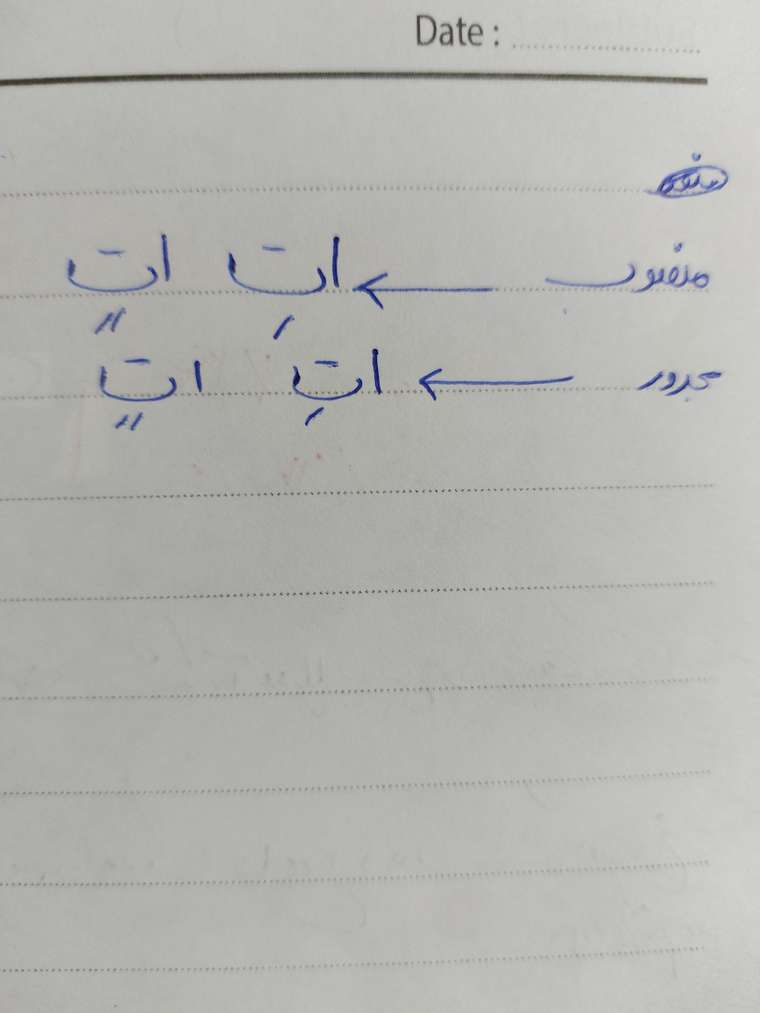 Date :
منصوب ← اتِ اتٍ
مجرور ← اتِ اتٍ